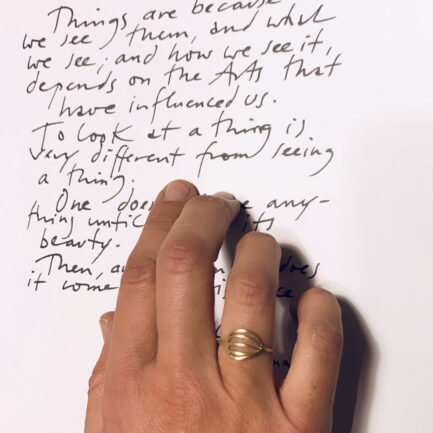 Things are because
we see them, and what
we see, and how we see it,
depends on the Arts that
have influenced us.
To look at a thing is
very different from seeing
a thing.
One does any-
thing until its
beauty.
Then, does
it come